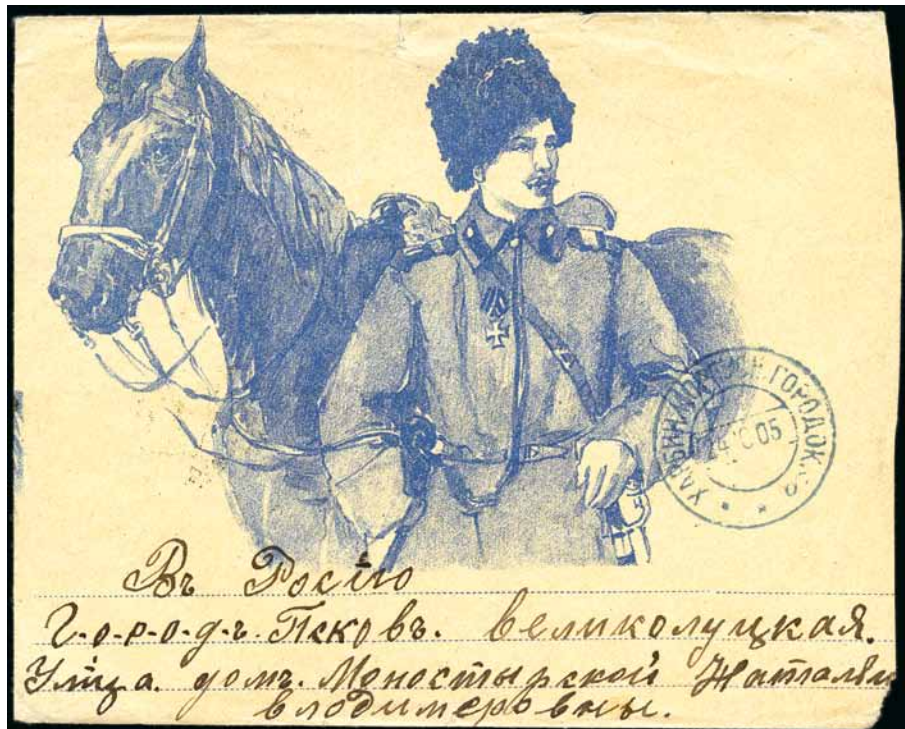 ХАРБИН ГОРОДОК
05
Въ Росію
Г-о-р-о-д-ъ. Псковъ. великолуцкая.
Улица. домъ. Моностырской Наталіи
влодимеровны.